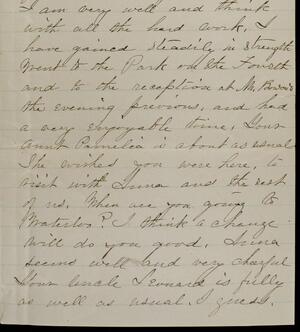 I am very well and think
with all the hard work, I
have gained steadily in strength
Went to the Park on the Fourth
and to the reception at Mr.
the evening previous, and had
a very enjoyable time, Your
Aunt Pamelia is about as usual
She wishes you were here, to
visit with Irina and the rest
of us. When are you going to
Waterloo? I think a change
will do you good, Irina
seems well and very cheerful
Your Uncle Leonard is fully
as well as usual. I guess.